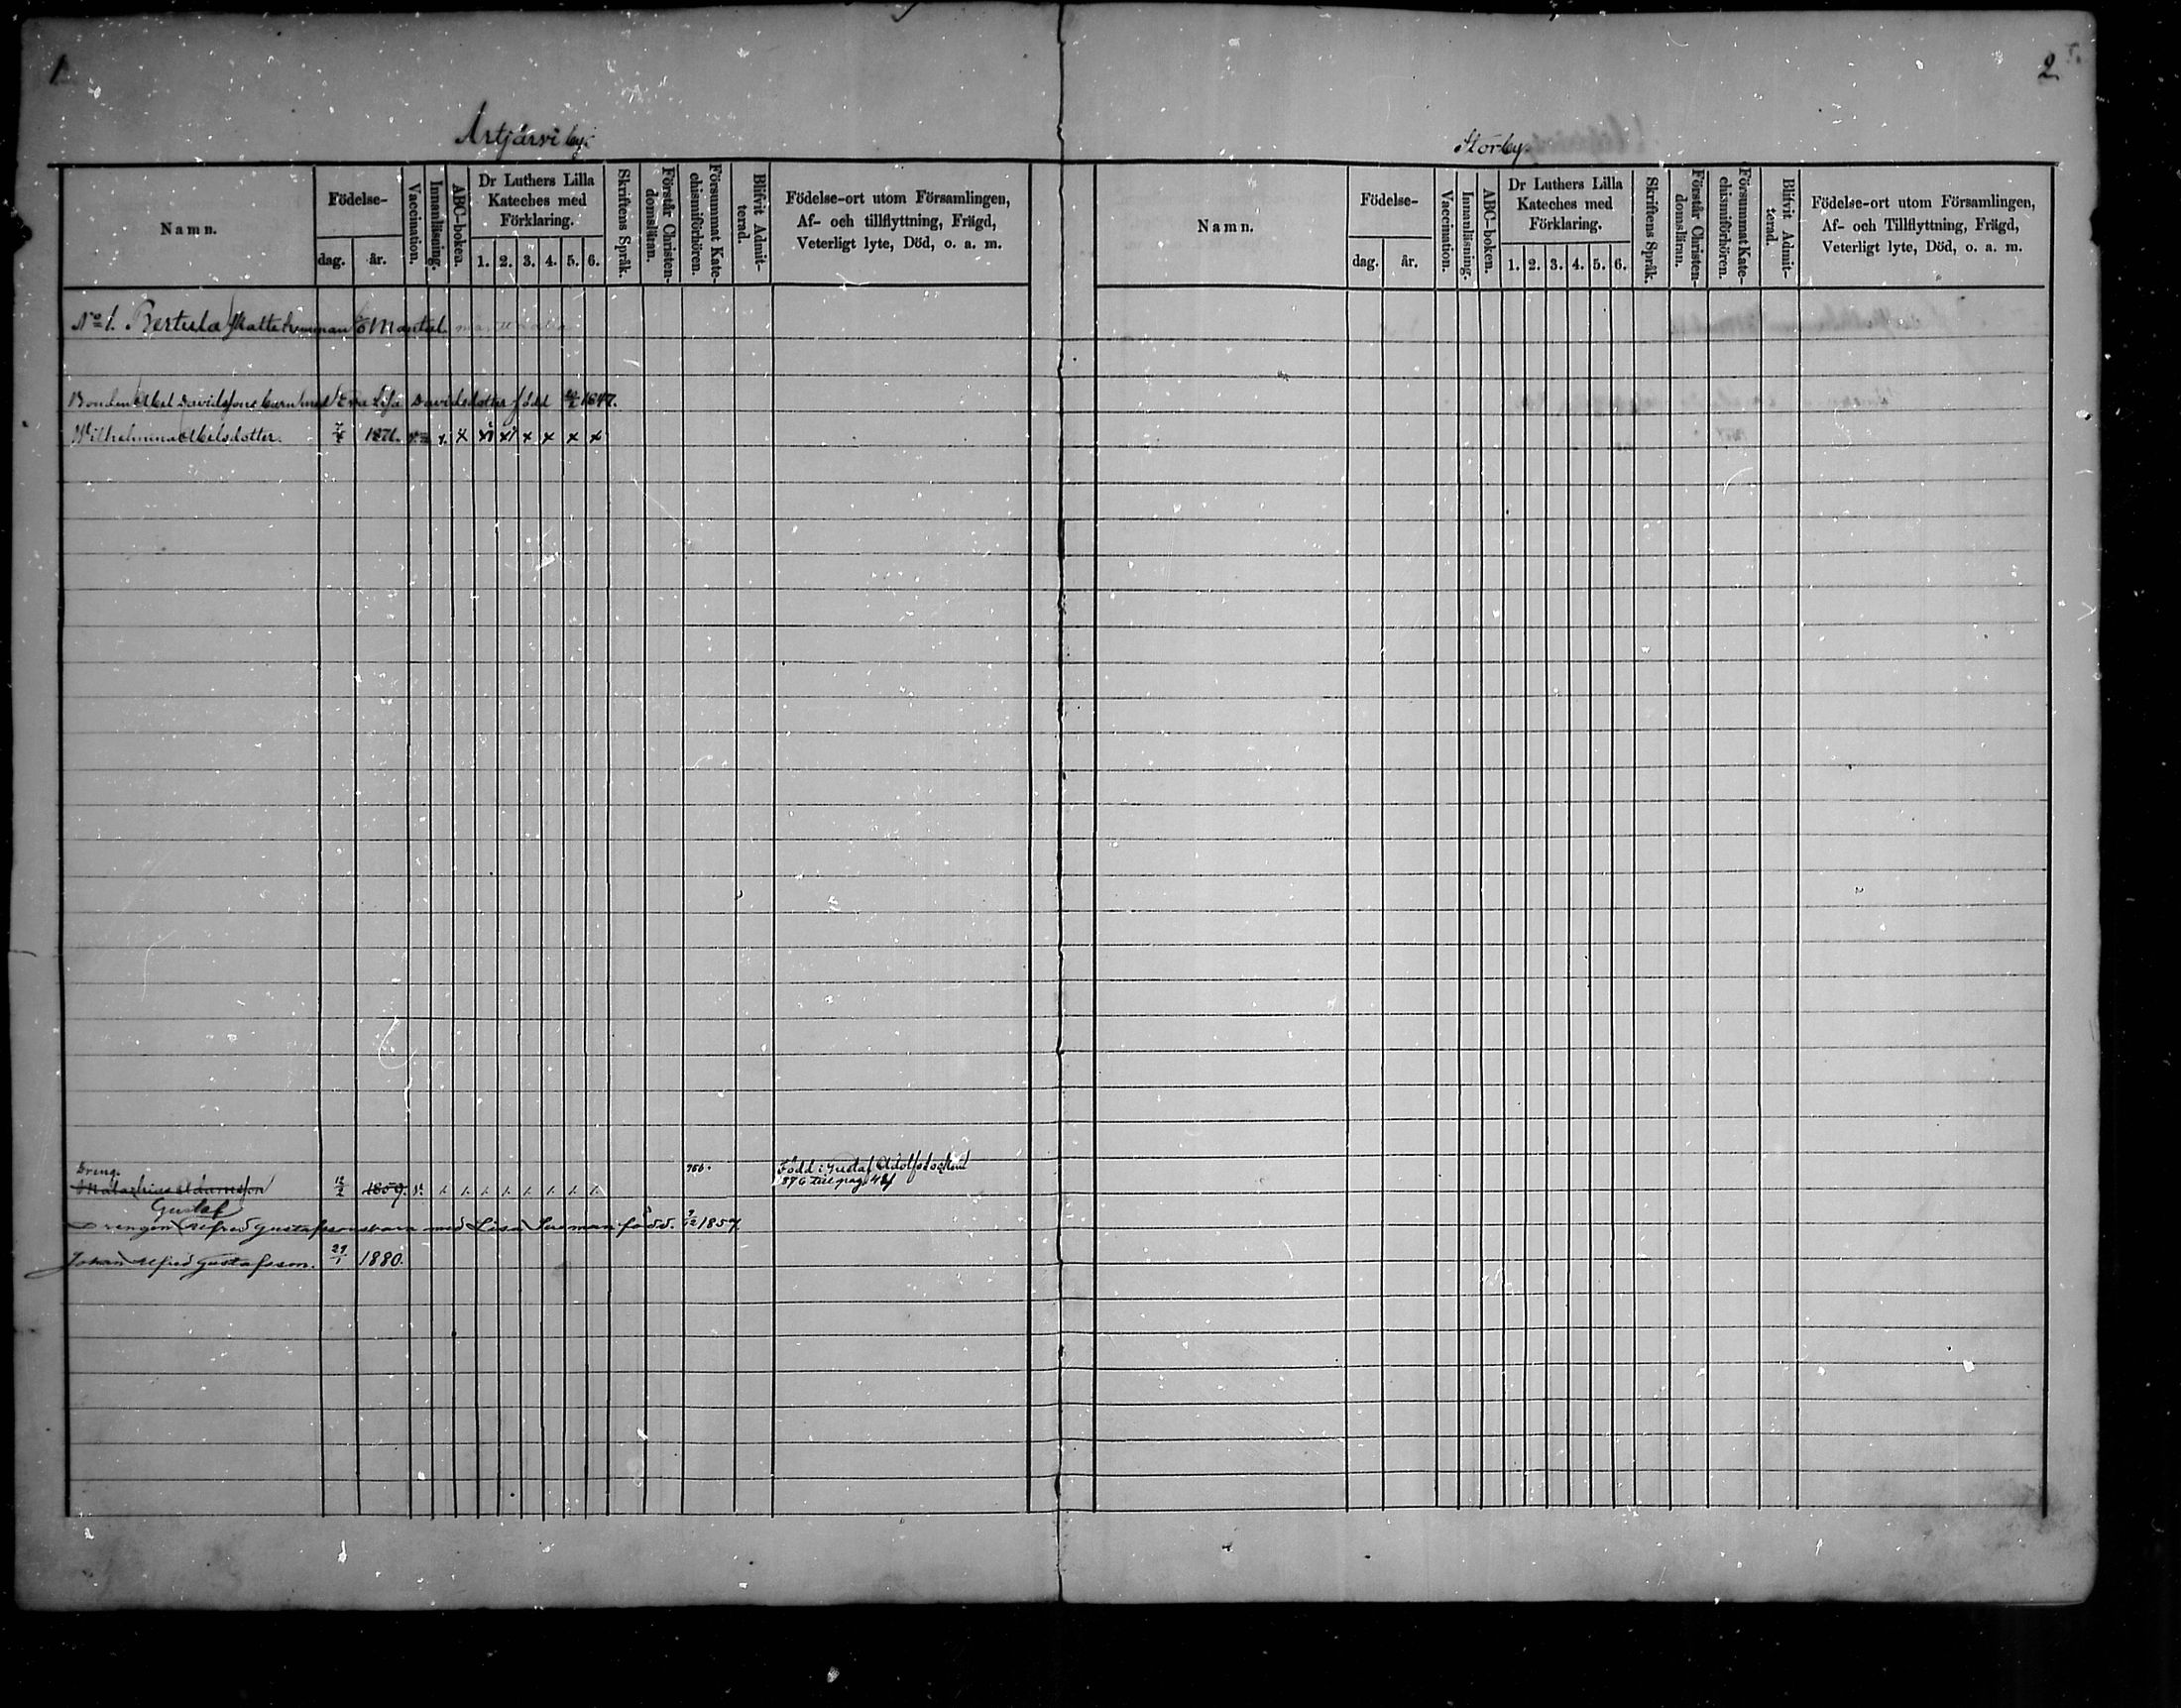 1
Artjärvi by.
Namn.
Födelse-
dag.
år.
Vaccination.
Innanläsning.
ABC-boken.
Dr Luthers Lilla
Kateches med
Förklaring.
1. 2. 3. 4. 5. 6.
Skriftens Språk.
Förstår Christen-
domsläran.
Försummat Kate-
chismiförhören.
Blifvit Admit-
terad.
Födelse-ort utom Församlingen,
Af- och tillflyttning, Frägd,
Veterligt lyte, Död, o. a. m.
No 1. Bertula Skattehemman Mantal.
Bonden Axel Davidssons barn med Eva Lisa Davidsdotter född 1847.
Wilhelmina Axelsdotter. 1871. x x x x x x x x
Dreng.
Malachias Adamsson 12/2 1859.
Född i Gustaf Adolfs socken
1876 till pag. 484
Gustaf
Drengen Alfred Gustafssons barn med Lisa född. 1857
Johan Alfred Gustafsson. 29/1 1880.
2
Storby.
Namn.
Födelse-
dag.
år.
Vaccination.
Innanläsning.
ABC-boken.
Dr Luthers Lilla
Kateches med
Förklaring.
1. 2. 3. 4. 5. 6.
Skriftens Språk.
Förstår Christen-
domsläran.
Försummat Kate-
chismiförhören.
Blifvit Admit-
terad.
Födelse-ort utom Församlingen,
Af- och Tillflyttning, Frägd,
Veterligt lyte, Död, o. a. m.